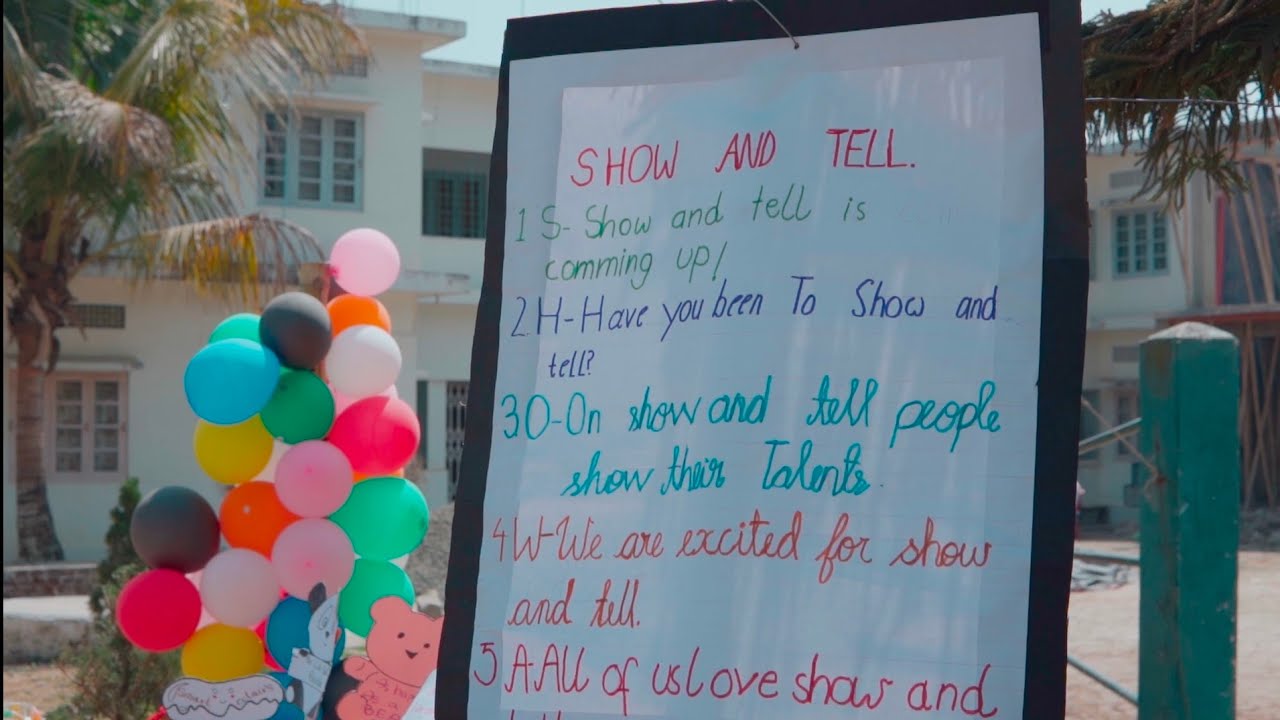 SHOW AND TELL.
1 S- Show and tell is
comming up!
2. H-Have you been To Show and
tell?
3 O-On show and tell people
show their Talents.
4 W-We are excited for show
and tell.
5 A.All of us love show and